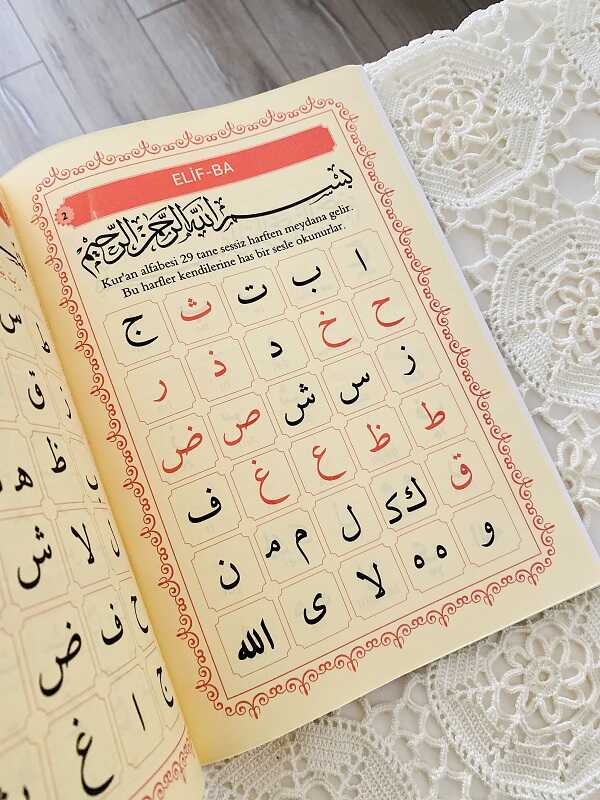 ELİF-BA
2
بِسْمِ اللّٰهِ الرَّحْمٰنِ الرَّحِيمِ
Kur'an alfabesi 29 tane sessiz harften meydana gelir.
Bu harfler kendilerine has bir sesle okunurlar.
ا ب ت ث ج
ح خ د ذ ر
ز س ش ص ض
ط ظ ع غ ف
ق ك ك ل م م ن
و ه ه لا ى الله
س
ق
ظ ه
لا ش
ف ض
ا غ